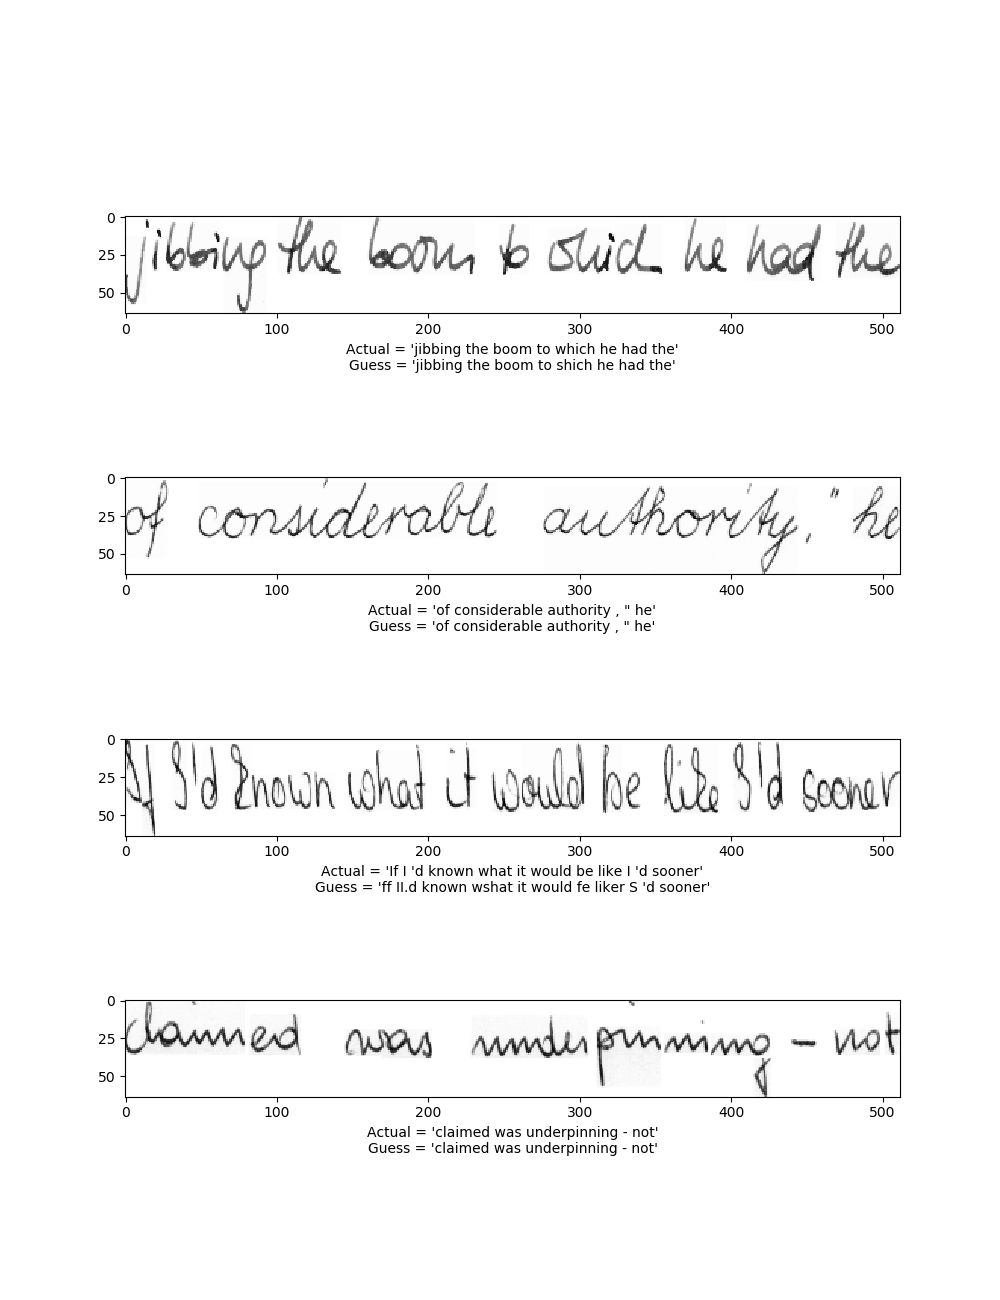 0
25
50
jibbing the boom to which he had the
0 100 200 300 400 500
Actual = 'jibbing the boom to which he had the'
Guess = 'jibbing the boom to shich he had the'
0
25
50
of considerable authority, " he
0 100 200 300 400 500
Actual = 'of considerable authority , " he'
Guess = 'of considerable authority , " he'
0
25
50
If I'd known what it would be like I'd sooner
0 100 200 300 400 500
Actual = 'If I 'd known what it would be like I 'd sooner'
Guess = 'ff II.d known wshat it would fe liker S 'd sooner'
0
25
50
claimed was underpinning - not
0 100 200 300 400 500
Actual = 'claimed was underpinning - not'
Guess = 'claimed was underpinning - not'